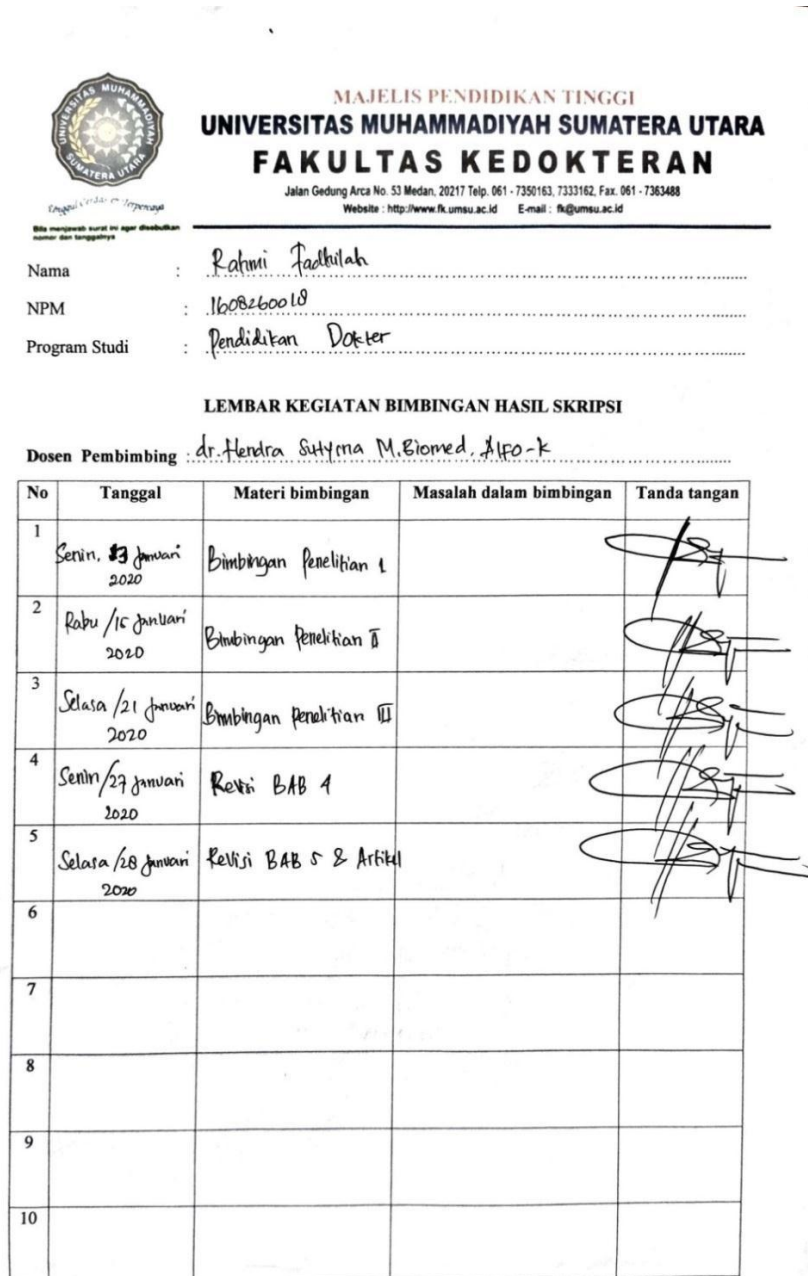 UNIVERSITAS MUHAMMADIYAH
SUMATERA UTARA
MAJELIS PENDIDIKAN TINGGI
UNIVERSITAS MUHAMMADIYAH SUMATERA UTARA
FAKULTAS KEDOKTERAN
Jalan Gedung Arca No. 53 Medan, 20217 Telp. 061 - 7350163, 7333162, Fax. 061 - 7363488
Website : http://www.fk.umsu.ac.id E-mail : fk@umsu.ac.id
Unggul Cerdas Terpercaya
Bila menjawab surat ini agar disebutkan
nomor dan tanggalnya
Nama : Rahmi Fadhilah
NPM : 1608260018
Program Studi : Pendidikan Dokter
LEMBAR KEGIATAN BIMBINGAN HASIL SKRIPSI
Dosen Pembimbing : dr. Hendra Sutysna M.Biomed, AIFO-K
No Tanggal Materi bimbingan Masalah dalam bimbingan Tanda tangan
1 Senin, 13 Januari 2020 Bimbingan Penelitian 1
2 Rabu /15 Januari 2020 Bimbingan Penelitian II
3 Selasa /21 Januari 2020 Bimbingan Penelitian III
4 Senin/27 Januari 2020 Revisi BAB 4
5 Selasa /28 Januari 2020 Revisi BAB 5 & Artikel
6
7
8
9
10